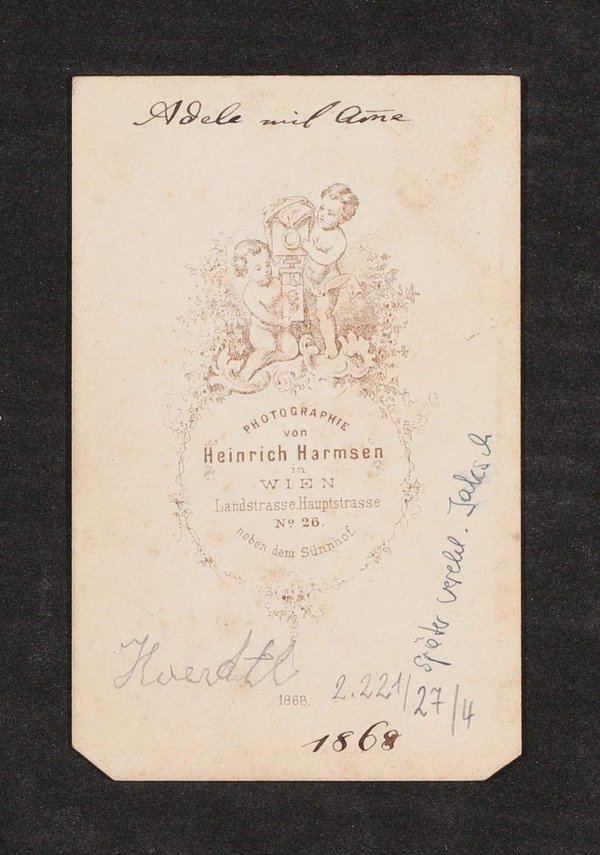 Adele mit Ame
PHOTOGRAPHIE
von
Heinrich Harmsen
in
WIEN
Landstrasse, Hauptstrasse
Nº 26.
neben dem Sünnhof.
später verehl. Jaksch
Hoerdtl
1868.
2.221/27/4
1868